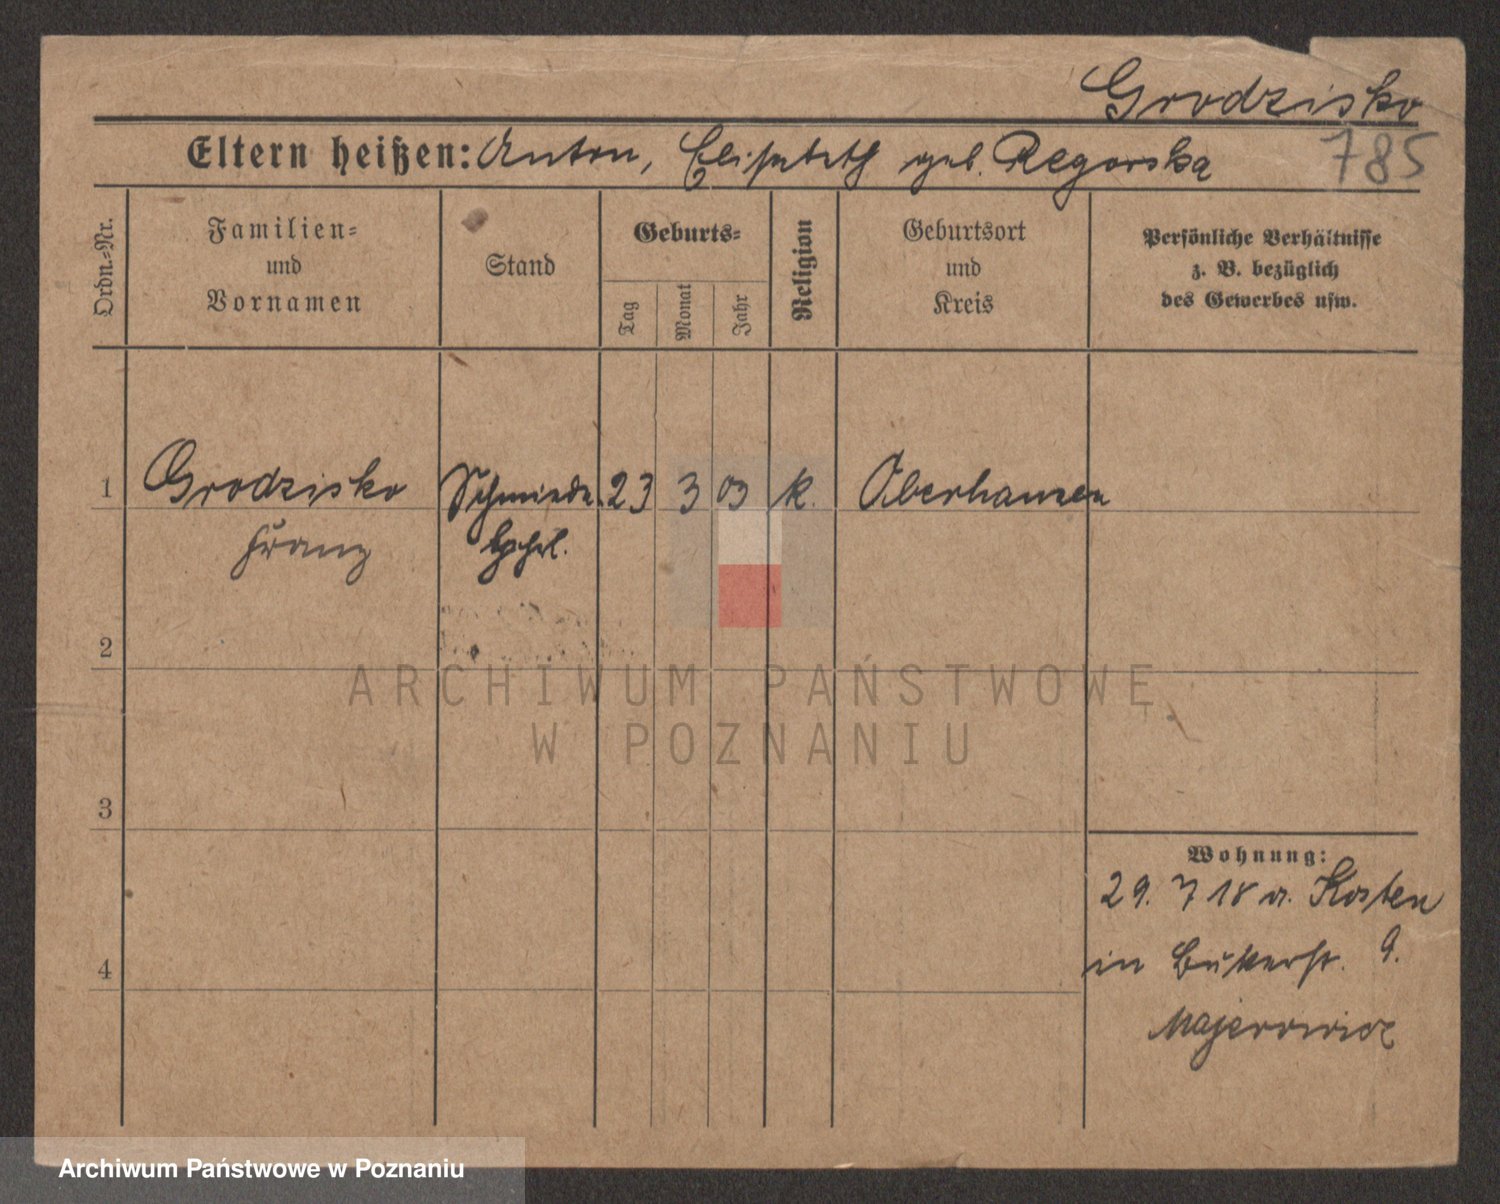 Grodzisko
785
Eltern heißen: Anton, Elisabeth geb. Regorska
Ordn.-Nr.
Familien-
und
Vornamen
Stand
Geburts-
Tag
Monat
Jahr
Religion
Geburtsort
und
Kreis
Persönliche Verhältnisse
z. B. bezüglich
des Gewerbes usw.
1 Grodzisko Schmiede 23 3 03 k. Oberhausen
Franz
2
3
4
Wohnung:
29. 7 18 a. Kosten
in Bukerstr. 9.
Majerowicz
ARCHIWUM PAŃSTWOWE
W POZNANIU
Archiwum Państwowe w Poznaniu